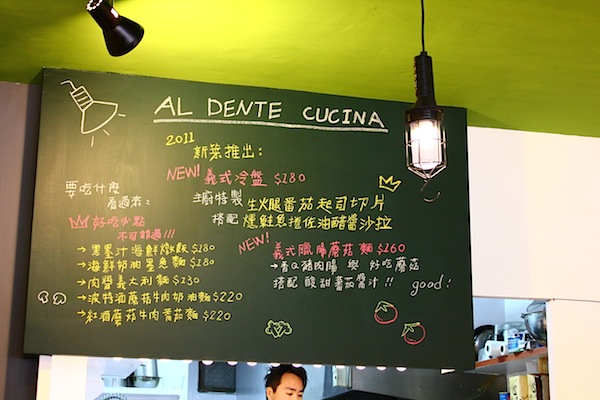 AL DENTE CUCINA
2011
新菜推出：
NEW! 義式冷盤 $180
主廚特製 生火腿番茄起司切片
搭配 燻鮭魚捲佐油醋醬沙拉
NEW! 義式臘腸蘑菇麵 $160
→香Q豬肉腸 與 好吃蘑菇
搭配 酸甜蕃茄醬汁!! good!
要吃什麼
看過來：
好吃必點
不可錯過!!!
→黑墨汁海鮮燉飯 $180
→海鮮奶油墨魚麵 $180
→肉醬義大利麵 $130
→波特酒蘑菇牛肉奶油麵 $220
→紅酒蘑菇牛肉番茄麵 $220